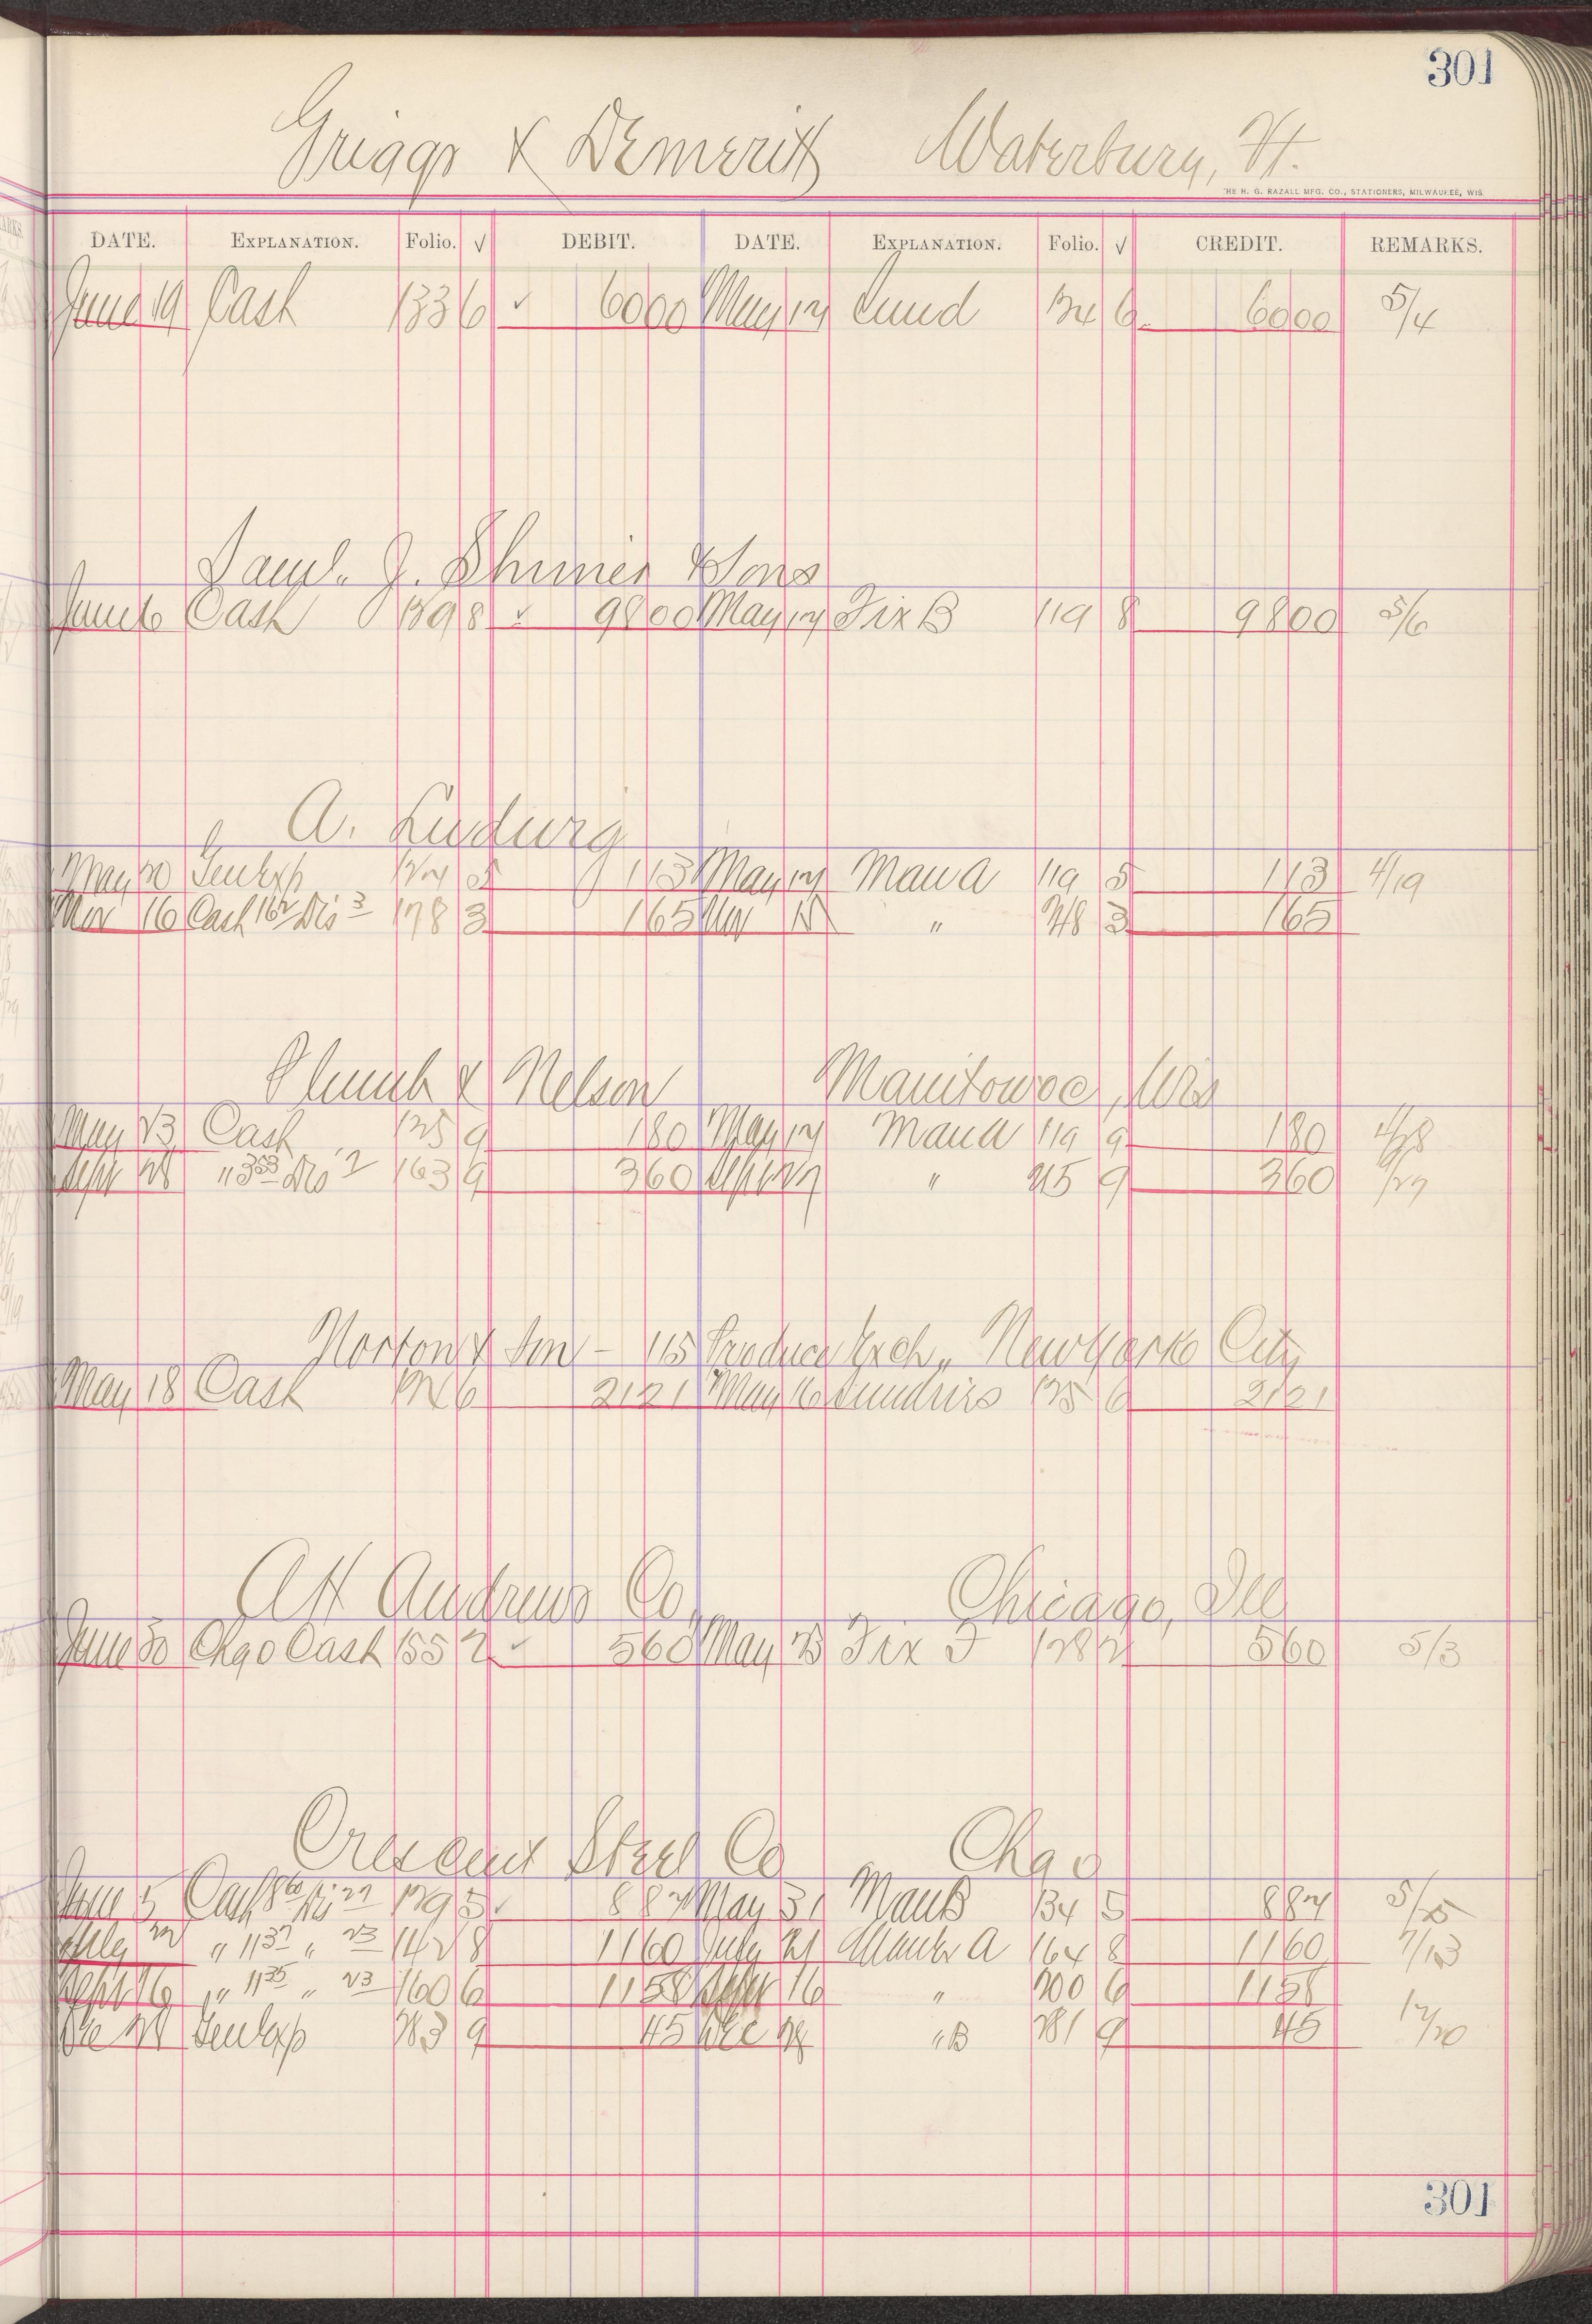 301
Griggs & Demeritt Waterbury, Vt.
THE H. G. RAZALL MFG. CO., STATIONERS, MILWAUKEE, WIS.
DATE. EXPLANATION. Folio. √ DEBIT. DATE. EXPLANATION. Folio. √ CREDIT. REMARKS.
June 19 Cash 133 6 ✓ 6000 May 17 Lund 124 6 6000 5/4
Saml. J. Shimer & Sons
June 6 Cash 129 8 ✓ 9800 May 17 Fix B 119 8 9800 5/6
A. Ludwig
May 20 Gen Exp 127 5 113 May 17 Man A 119 5 113 4/19
Nov 16 Cash 162 Dis 3 178 3 165 Nov 248 3 165
& Nelson Manitowoc, Wis
May 23 Cash 125 9 180 May 17 Man A 119 9 180 4/28
Sept 28 " 353 Dis 7 163 9 360 Sept 27 " 215 9 360 9/27
Norton & Son - 115 Produce Exch., New York City
May 18 Cash 126 2121 May 16 Sundries 125 6 2121
A H Andrews Co. Chicago, Ill
June 30 Chgo Cash 155 2 ✓ 560 May 23 Fix F 128 2 560 5/3
Crescent Steel Co Chgo
June 5 Cash 860 Dis 27 129 5 ✓ 887 May 31 Man B 134 5 887 5/25
" 1137 " 23 142 8 1160 July 21 A 164 8 1160 7/13
Sept 16 " 1135 " 23 160 6 1158 Sept 16 " 200 6 1158
Dec Gen Exp 283 9 45 Dec " B 281 9 45 12/20
301